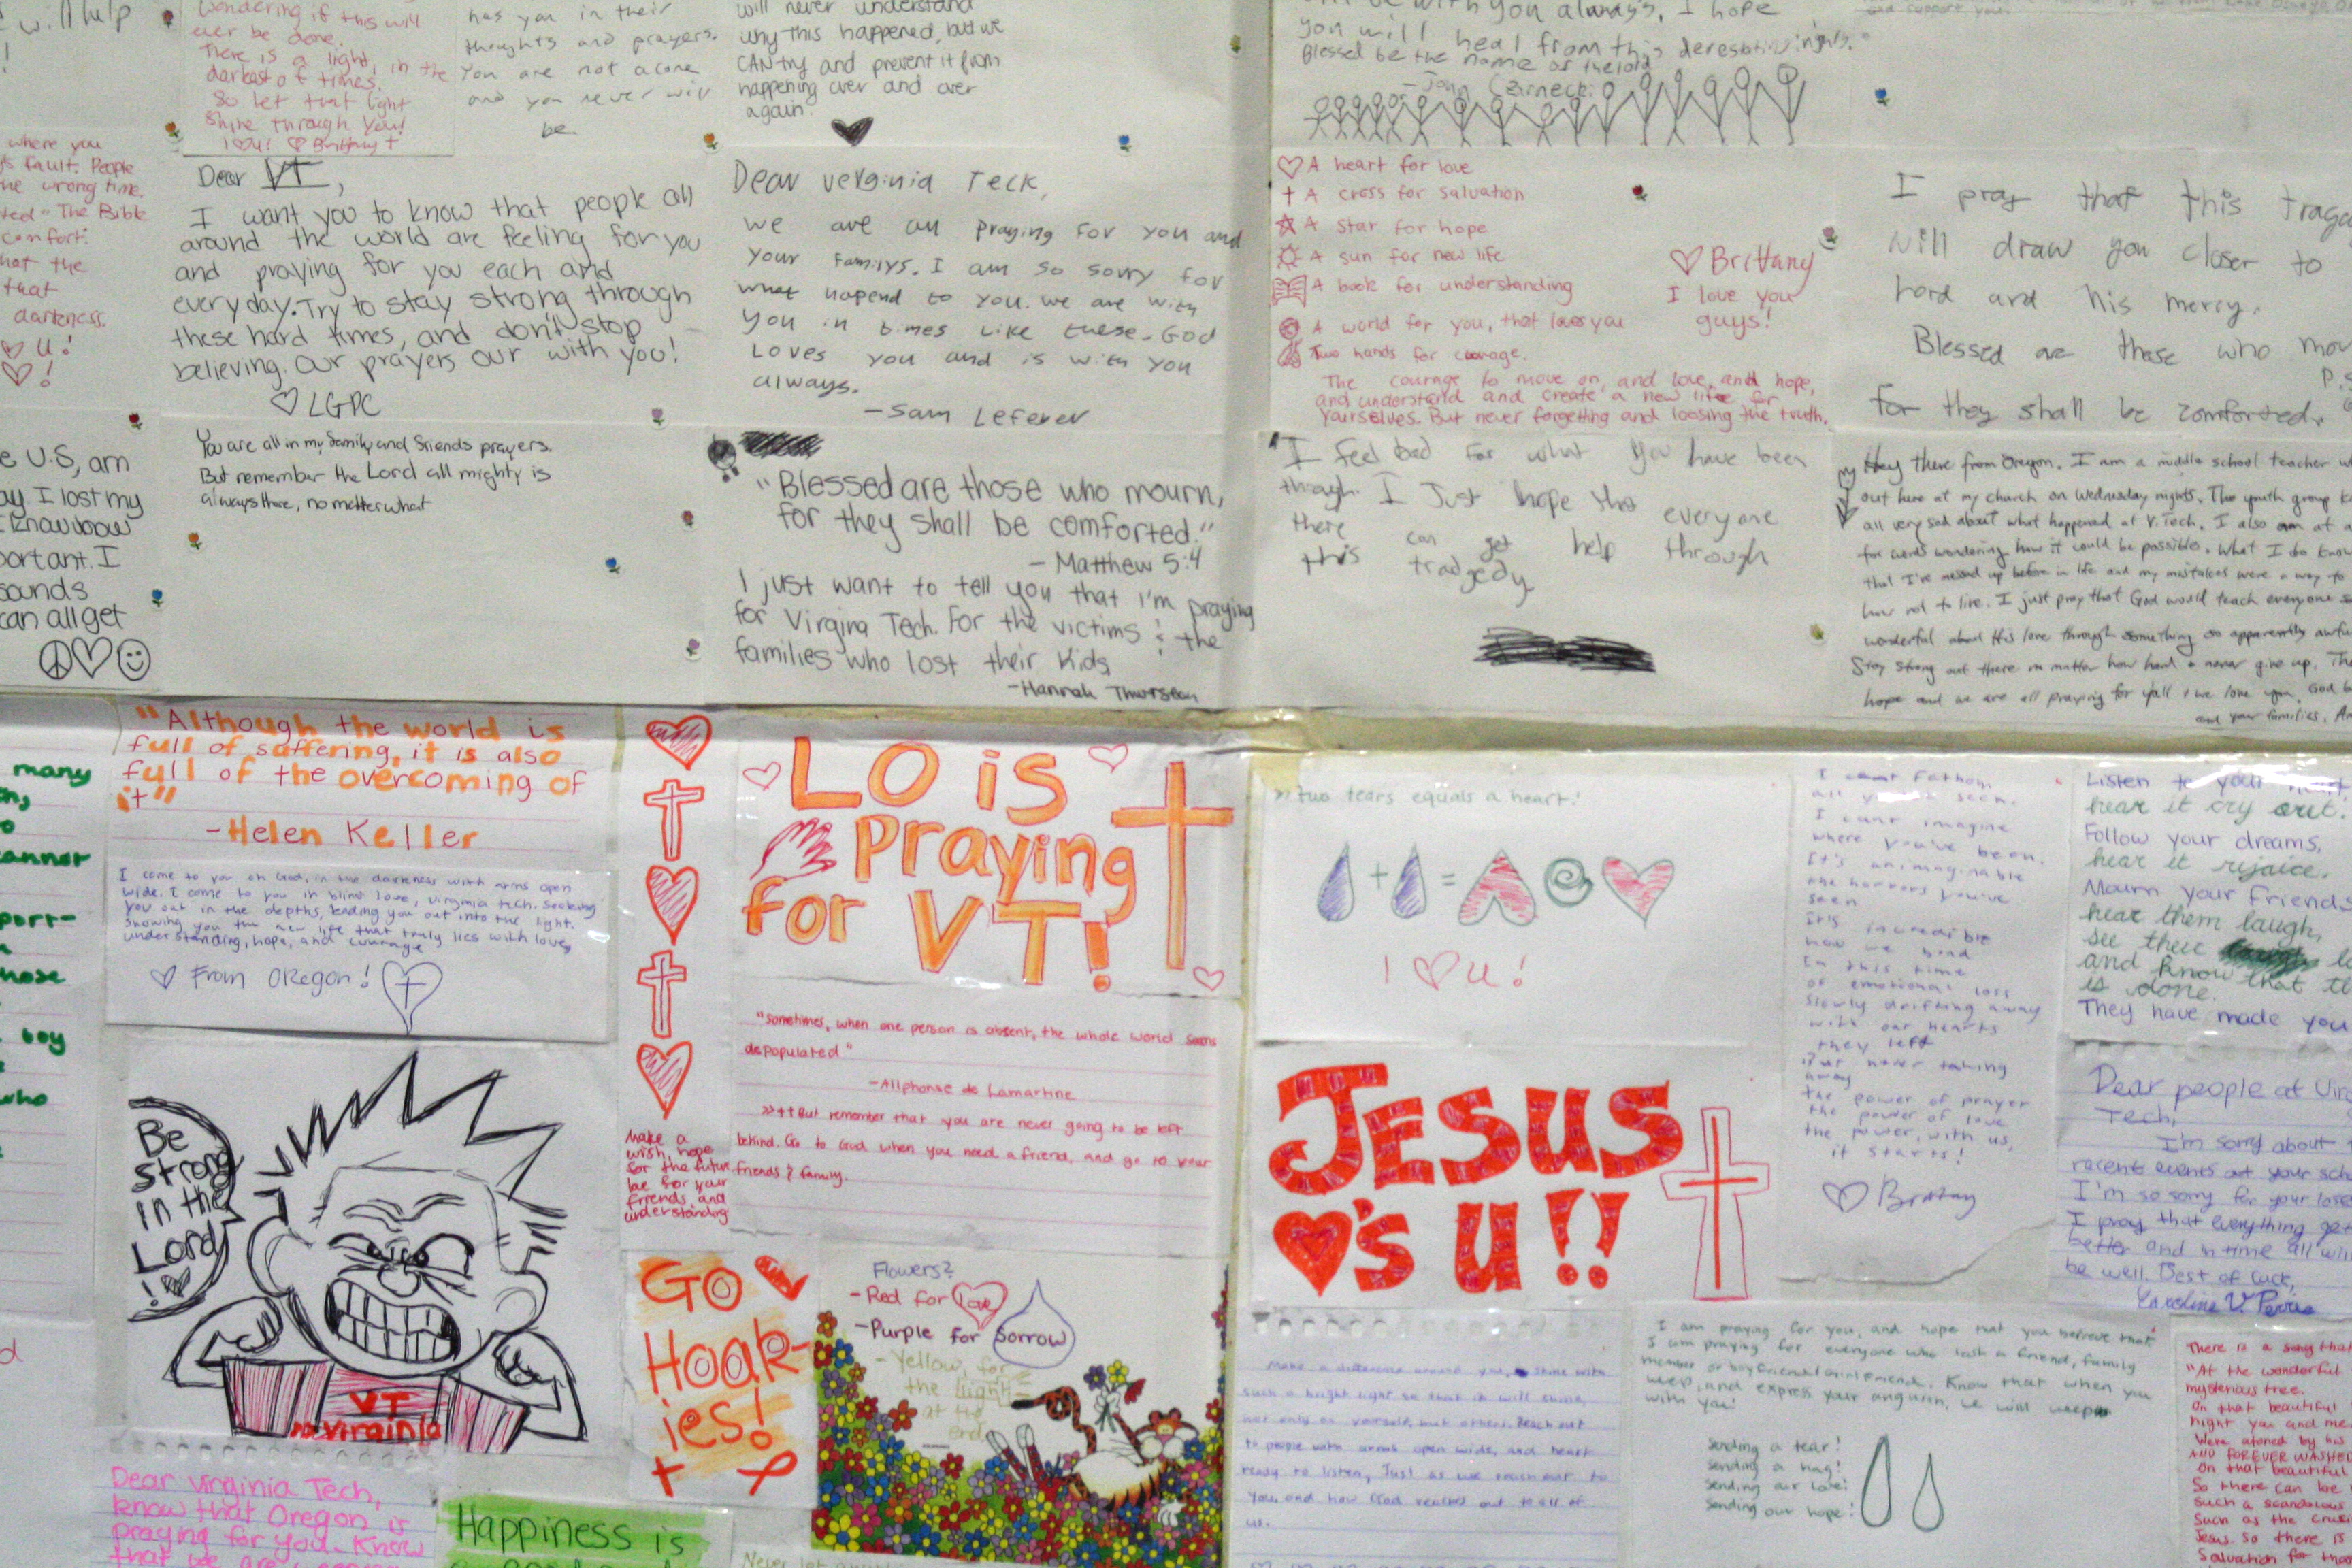 will help
!
wondering if this will
ever be done.
There is a light, in the
darkest of times.
So let that light
shine through you!
I ♡ u! ♡ Brittany +
has you in their
thoughts and prayers.
You are not alone
and you never will
be.
will never understand
why this happened, but we
CAN try and prevent it from
happening over and over
again.
with you always, I hope
you will heal from this
Blessed be the name of the lord
where you
fault. People
wrong time.
The Bible
comfort.
that the
that
darkness.
♡ U!
♡!
Dear VT,
I want you to know that people all
around the world are feeling for you
and praying for you each and
every day. Try to stay strong through
these hard times, and don't stop
believing. Our prayers our with you!
♡ LGPC
Dear Verginia Teck,
we are all praying for you and
your familys. I am so sorry for
what hapend to you. we are with
you in times like these. God
Loves you and is with you
always.
-Sam Lefever
♡ A heart for love
† A cross for salvation
☆ A star for hope
A sun for new life
A book for understanding
A world for you, that loves you
Two hands for courage.
The courage to move on, and love, and hope,
and understand and create a new life for
yourselves. But never forgetting and loosing the truth.
♡ Brittany
I love you
guys!
I pray that this
will draw you closer to
Lord and his mercy.
Blessed are those who
P.S
for they shall be comforted.
U.S, am
I lost my
I know how
I
sounds
can all get
You are all in my family and friends prayers.
But remember the Lord all mighty is
always there, no matter what
"Blessed are those who mourn,
for they shall be comforted."
- Matthew 5:4
I just want to tell you that I'm praying
for Virgina Tech. For the victims & the
families who lost their kids
-Hannah Thurston
I feel bad for what you have been
through. I Just hope that everyone
there can get help through
this tradgedy
Hey there from Oregon. I am a middle school teacher
out here at my church on Wednesday nights. The youth group
all very sad about what happened at V.Tech. I also am at
for words wondering how it could be possible. What I do know
that I've messed up before in life and my mistakes were a way to
how not to live. I just pray that God would teach everyone
wonderful about His love through something so apparently
Stay strong out there no matter how hard & never give up.
hope and we are all praying for y'all & we love you. God
and your families.
many
cannot
boy
who
"Although the world is
full of suffering, it is also
full of the overcoming of
it"
-Helen Keller
I come to you oh God, in the darkness with arms open
wide. I come to you in blind love, Virginia tech. Seeking
you out in the depths, leading you out into the light.
Showing you the new life that truly lies with love,
understanding, hope, and courage
♡ From Oregon!
Make a
wish, hope
for the future
be for your
friends, and
understanding
LO is
Praying
for VT!
"Sometimes, when one person is absent, the whole world seems
depopulated"
-Allphonse de Lamartine
>>++But remember that you are never going to be left
behind. Go to God when you need a friend, and go to your
friends & family.
>> two tears equals a heart!
+ =
I ♡ U!
JESUS
♥'s U!!
I cant fathom
all you've seen.
I cant imagine
where you've been.
It's unimaginable
the horrors you've
seen
It's incredible
how we bond
In this time
of emotional loss
slowly drifting away
with our hearts
they left
But never taking
away
the power of prayer
the power of love
the power, with us,
it starts!
♡ Brittany
Listen to your heart,
hear it cry out.
Follow your dreams,
hear it rejoice.
Mourn your friends
hear them laugh,
see their
and know that
is done.
They have made you
Dear people at
Tech,
I'm sorry about
recent events at your
I'm so sorry for your
I pray that everything
better and in time all
be well. Best of luck,
Be
strong
in the
Lord
!♡
VT
Virginia
GO
Hoak-
ies!
Flowers?
-Red for Love
-Purple for Sorrow
-Yellow, for
the light
at the
end
Make a difference around you, shine with
such a bright light so that it will shine,
not only on yourself, but others. Reach out
to people with arms open wide, and heart
ready to listen, Just as we reach out to
you, and how God reaches out to all of
us.
I am praying for you, and hope that you believe that
I am praying for everyone who lost a friend, family
member or boyfriend/girlfriend. Know that when you
weep, and express your anguish, we will weep
with you!
Sending a tear!
Sending a hug!
Sending our love!
Sending our hope!
There is a song that
"At the wonderful
mysterious tree.
On that beautiful
night you and me
Were atoned by his
AND FOREVER WASHED
On that beautiful
So there can be
such a scandalous
such as the
Jesus. So there is
Salvation for
Dear Virginia Tech,
know that Oregon is
praying for you. Know
that we are
Happiness is